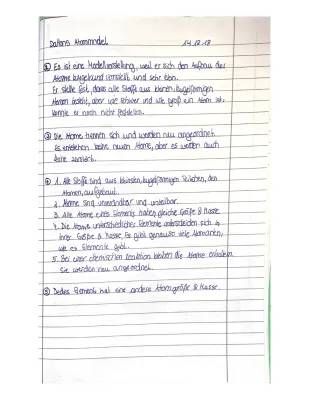 Daltons Atommodel 14.12.18
① Es ist eine Modellvorstellung, weil er sich den Aufbau des
Atoms kugelrund vorstellt und sehr klein.
Er stellte fest, dass alle Stoffe aus kleinen, kugelförmigen
Atomen besteht, aber wie schwer und wie groß ein Atom ist,
konnte er noch nicht feststellen.
③ Die Atome trennen sich und werden neu angeordnet.
Es entstehen keine neuen Atome, aber es werden auch
keine zerstört.
④ 1. Alle Stoffe sind aus kleinsten, kugelförmigen Teilchen, den
Atomen, aufgebaut.
2. Atome sind unveränderbar und unteilbar.
3. Alle Atome eines Elements haben gleiche Größe & Masse
4. Die Atome unterschiedlicher Elemente unterscheiden sich in
ihrer Größe & Masse. Es gibt genauso viele Atomarten,
wie es Elemente gibt.
5. Bei einer chemischen Reaktion bleiben die Atome erhalten.
Sie werden neu angeordnet.
⑤ Jedes Element hat eine andere Atomgröße & Masse.